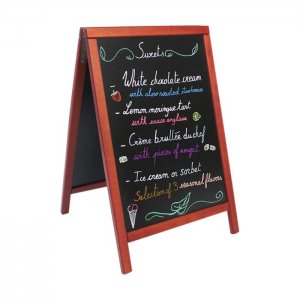 Sweets
- White chocolate cream
with slow roasted
- Lemon meringue tart
with sauce anglaise
- Crème brullée du chef
with pieces of nougat
- Ice cream or sorbet
Selection of 3 seasonal flavors